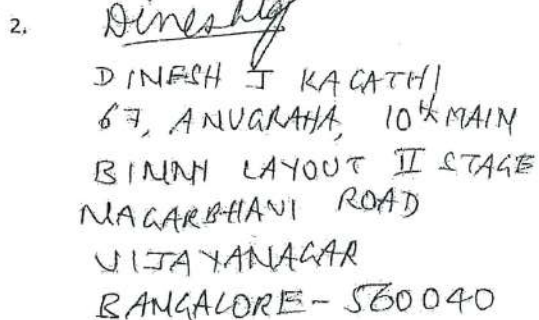 2.
DINESH J KAGATHI
67, ANUGRAHA, 10th MAIN
BINNY LAYOUT II STAGE
NAGARBHAVI ROAD
VIJAYANAGAR
BANGALORE - 560040